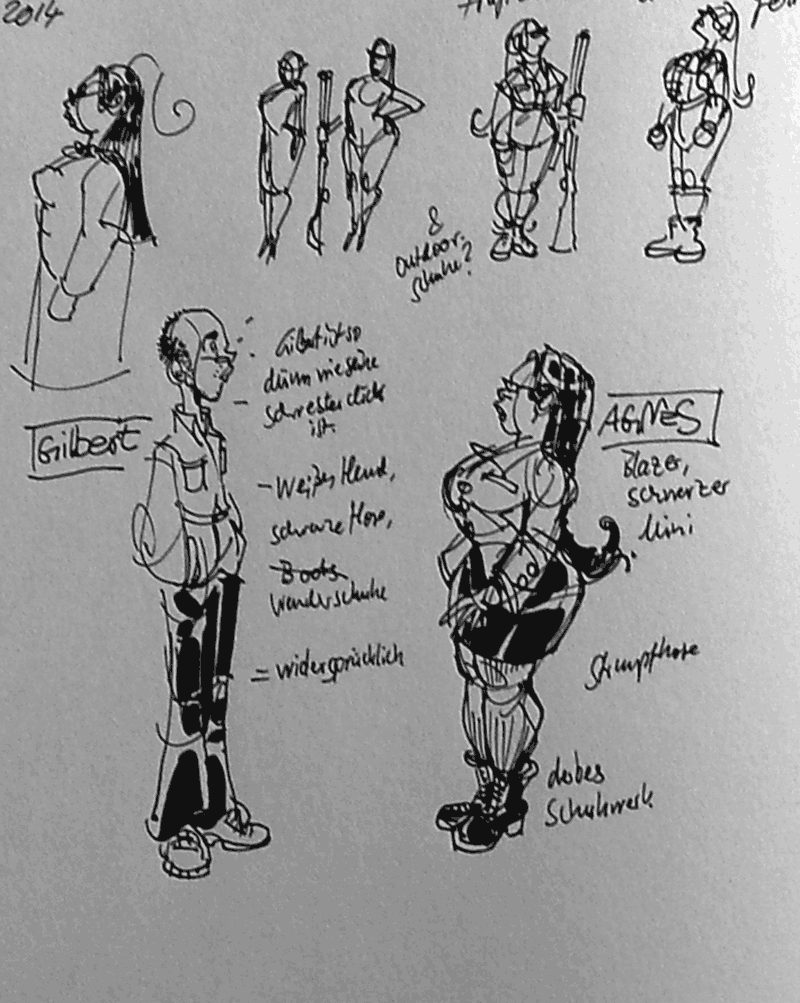 2014
&
outdoor-
schuhe?
Gilbert ist so
dünn wie seine
schwester dick
ist.
Gilbert
AGNES
Blazer,
schwarzer
Mini
- Weißes Hemd,
schwarze Hose,
Boots
Wanderschuhe
= widersprüchlich
Strumpfhose
derbes
Schuhwerk